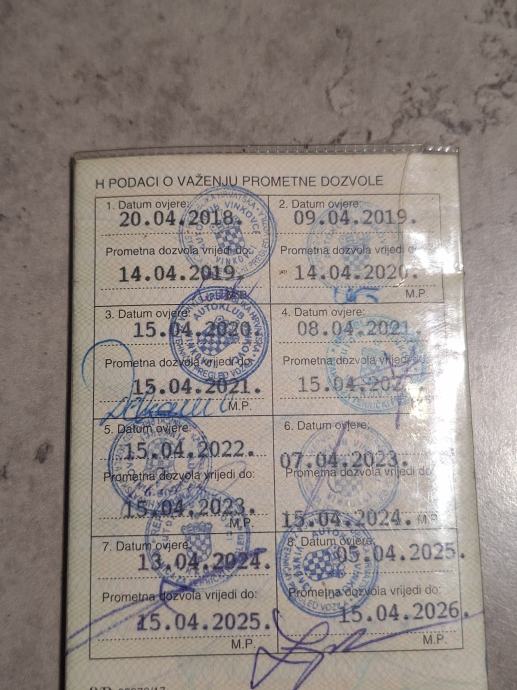 H PODACI O VAŽENJU PROMETNE DOZVOLE
1. Datum ovjere:
20.04.2018.
Prometna dozvola vrijedi do:
14.04.2019.
2. Datum ovjere:
09.04.2019.
Prometna dozvola vrijedi do:
14.04.2020.
M.P.
3. Datum ovjere:
15.04.2020.
Prometna dozvola vrijedi do:
15.04.2021.
M.P.
4. Datum ovjere:
08.04.2021.
Prometna dozvola vrijedi do:
15.04.
5. Datum ovjere:
15.04.2022.
Prometna dozvola vrijedi do:
15.04.2023.
M.P.
6. Datum ovjere:
07.04.2023.
Prometna dozvola vrijedi do:
15.04.2024.
M.P.
7. Datum ovjere:
13.04.2024.
Prometna dozvola vrijedi do:
15.04.2025.
M.P.
8. Datum ovjere:
05.04.2025.
Prometna dozvola vrijedi do:
15.04.2026.
M.P.
AUTOKLUB VINKOVCI
AUTOKLUB